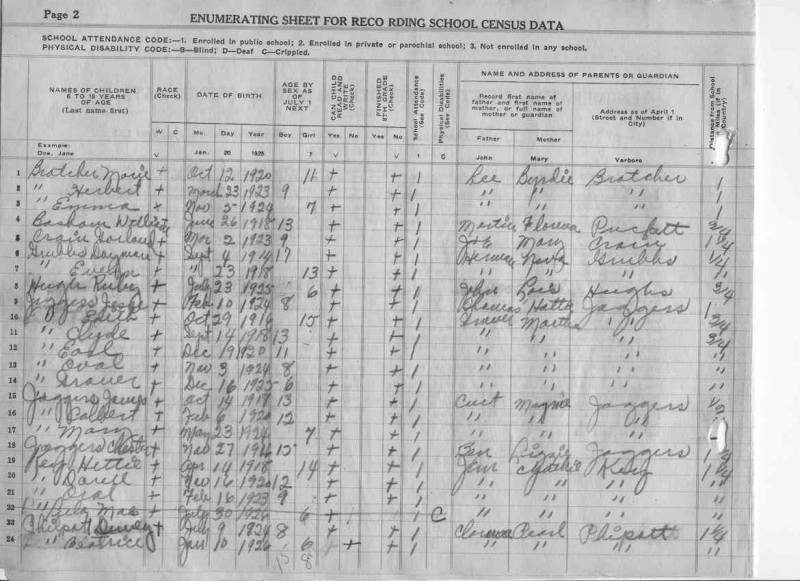 Page 2
ENUMERATING SHEET FOR RECO RDING SCHOOL CENSUS DATA
SCHOOL ATTENDANCE CODE:—1. Enrolled in public school; 2. Enrolled in private or parochial school; 3. Not enrolled in any school.
PHYSICAL DISABILITY CODE:—B—Blind; D—Deaf C—Crippled.
NAMES OF CHILDREN 6 TO 18 YEARS OF AGE (Last name first) RACE (Check) DATE OF BIRTH AGE BY SEX AS OF JULY 1 NEXT CAN CHILD READ AND WRITE (Check) FINISHED 8TH GRADE (Check) School Attendance (See Code) Physical Disabilities (See Code) NAME AND ADDRESS OF PARENTS OR GUARDIAN Distance from School in Miles (if in Country)
Record first name of father and first name of mother, or full name of mother or guardian Address as of April 1 (Street and Number if in City)
W C Mo. Day Year Boy Girl Yes No Yes No Father Mother
Example: Doe, Jane V Jan. 20 1925 7 V V 1 C John Mary Varboro
1 Bratcher Marie + Oct 12 1920 11 + + 1 Lee Byrdie Bratcher 1
2 " Herbert + March 23 1923 9 + + 1 " " " 1
3 " Emma + Nov 5 1924 7 + + 1 " " " 1
4 Basham + June 26 1918 13 + + 1 Martin Puckett 3/4
5 Crain + Mar 2 1923 9 + + 1 Mary Crain
6 Grubbs + Sept 4 1914 17 + + 1 Herman Grubbs 1/4
7 " Evelyn + " 23 1918 13 + + 1 " " " "
8 Hughs Ruby + July 23 1925 6 + + 1 John Hughs 3/4
9 Jaggers + Feb 10 1924 8 + + 1 Thomas Hattie Jaggers 1
10 " Edith + Oct 29 1916 15 + + 1 Martha " "
11 " Clyde + Sept 14 1918 13 + + 1 " " " 3/4
12 " Earl + Dec 19 1920 11 + + 1 " " " "
13 " Oval + Nov 3 1924 8 + + 1 " " " "
14 " + Dec 16 1925 6 + + 1 " " " "
15 Jaggers James + Oct 14 1918 13 + + 1 Curt Jaggers 1/2
16 " Colbert + Feb 6 1920 12 + + 1 " " " "
17 " Mary + May 23 1924 7 + + 1 " " "
18 Jaggers Chester + Nov 27 1916 15 + + 1 Ben Jaggers
19 Hettie + Apr 14 1918 14 + + 1 Jim
20 " + Nov 16 1920 12 + + 1 " " " "
21 " Oral + Feb 16 1923 9 + + 1 " " " "
22 " Mae + July 30 1925 6 + 1 C " " " "
23 Philpott Dewey + July 9 1924 8 + + 1 Clarence Pearl Philpott
24 " Beatrice + Jan 10 1926 6 + + 1 " " " "